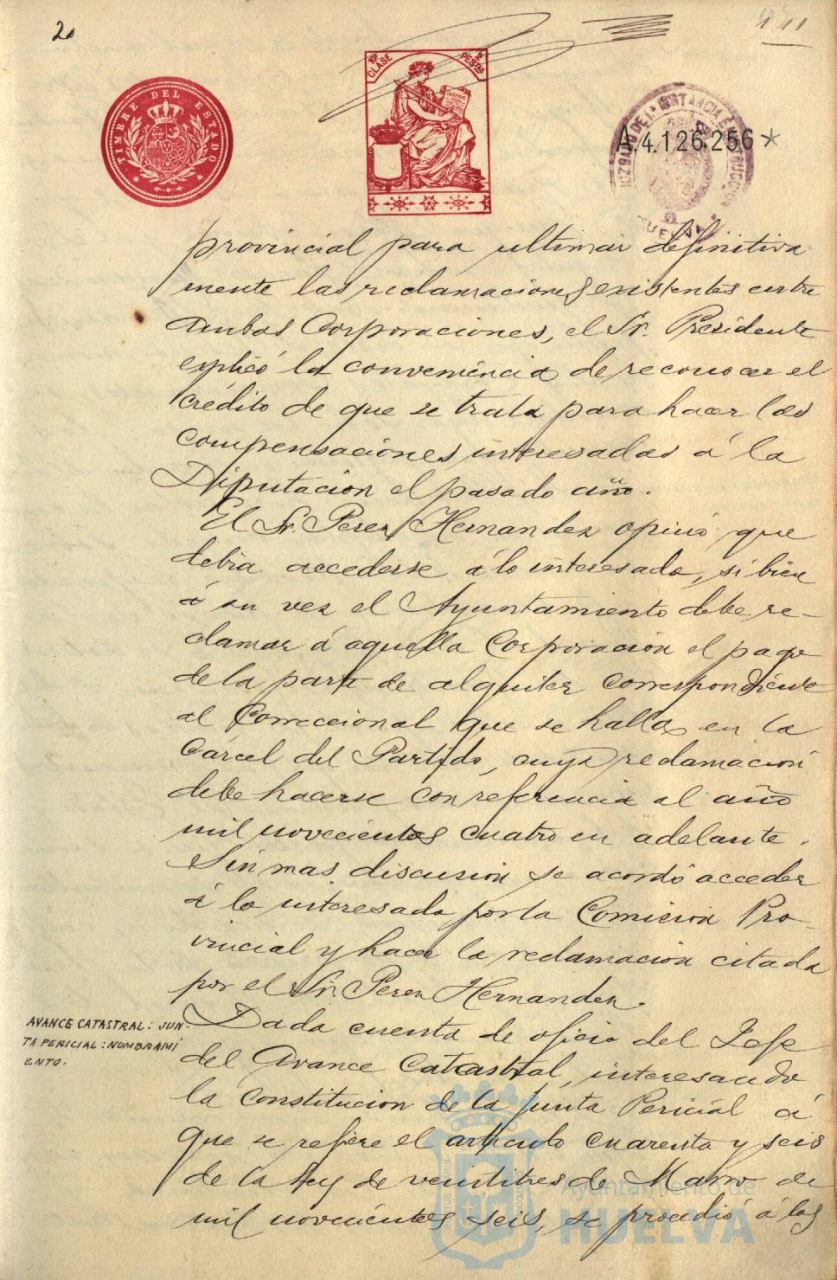 2.
TIMBRE DEL ESTADO
10ª CLASE
2 PESETAS
JUZGADO DE 1ª INSTANCIA E INSTRUCCION
HUELVA
A.4.126.256*
provincial para ultimar definitiva
mente las reclamaciones existentes entre
ambas Corporaciones, el Sr. Presidente
esplicó la conveniencia de reconocer el
crédito de que se trata para hacer las
compensaciones interesadas á la
Diputacion el pasado año.
El Sr. Perez Hernandez opinó que
debia accederse á lo interesado, si bien
á su vez el Ayuntamiento debe re-
clamar á aquella Corporación el pago
de la parte de alquiler correspondiente
al Correccional que se halla en la
Cárcel del Partido, cuya reclamación
debe hacerse con referencia al año
mil novecientos cuatro en adelante.
Sin mas discusion se acordó acceder
á lo interesado por la Comision Pro-
vincial y hacer la reclamacion citada
por el Sr. Perez Hernandez.
AVANCE CATASTRAL: JUN-
TA PERICIAL: NOMBRAMI
ENTO.
Dada cuenta de oficio del Jefe
del Avance Catastral, interesando
la constitucion de la Junta Pericial á
que se refiere el artículo cuarenta y seis
de la ley de veintitres de Marzo de
mil novecientos seis, se procedió á los
Ayuntamiento de
HUELVA